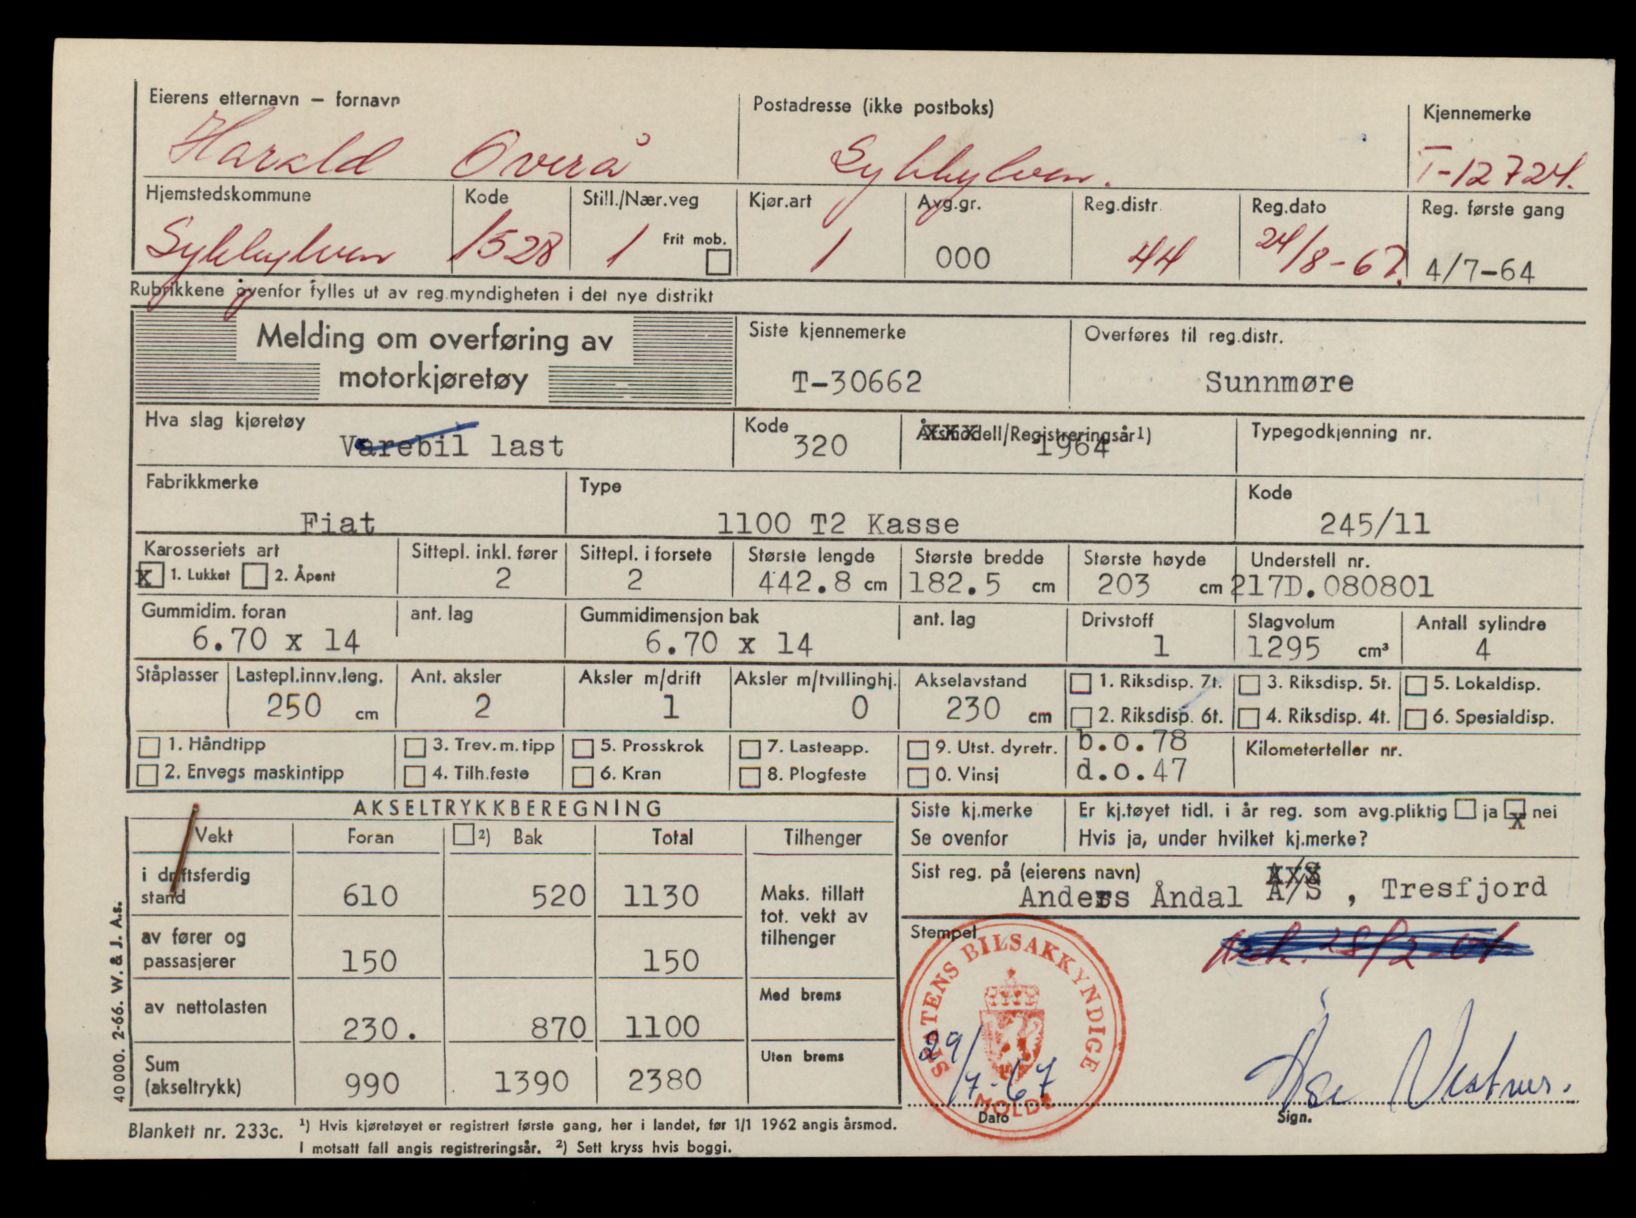 Eierens etternavn – fornavn Postadresse (ikke postboks) Kjennemerke
Harald Overå Sykkylven. T-12724.
Hjemstedskommune Kode Still./Nær.veg Kjør.art Avg.gr. Reg.distr. Reg.dato Reg. første gang
Sykkylven 1528 1 Frit mob. 1 000 44 24/8-67. 4/7-64
Rubrikkene ovenfor fylles ut av reg.myndigheten i det nye distrikt
Melding om overføring av Siste kjennemerke Overføres til reg.distr.
motorkjøretøy T-30662 Sunnmøre
Hva slag kjøretøy Kode Årsmodell/Registreringsår1) Typegodkjenning nr.
Varebil last 320 1964
Fabrikkmerke Type Kode
Fiat 1100 T2 Kasse 245/11
Karosseriets art Sittepl. inkl. fører Sittepl. i forsete Største lengde Største bredde Største høyde Understell nr.
x 1. Lukket 2. Åpent 2 2 442.8 cm 182.5 cm 203 cm 217D.080801
Gummidim. foran ant. lag Gummidimensjon bak ant. lag Drivstoff Slagvolum Antall sylindre
6.70 x 14 6.70 x 14 1 1295 cm³ 4
Ståplasser Lastepl.innv.leng. Ant. aksler Aksler m/drift Aksler m/tvillinghj. Akselavstand 1. Riksdisp. 7t. 3. Riksdisp. 5t. 5. Lokaldisp.
250 cm 2 1 0 230 cm 2. Riksdisp. 6t. 4. Riksdisp. 4t. 6. Spesialdisp.
1. Håndtipp 3. Trev.m.tipp 5. Prosskrok 7. Lasteapp. 9. Utst. dyretr. b.o.78 Kilometerteller nr.
2. Envegs maskintipp 4. Tilh.feste 6. Kran 8. Plogfeste 0. Vinsj d.o.47
AKSELTRYKKBEREGNING Siste kj.merke Er kj.tøyet tidl. i år reg. som avg.pliktig ja x nei
Vekt Foran 2) Bak Total Tilhenger Se ovenfor Hvis ja, under hvilket kj.merke?
i driftsferdig stand 610 520 1130 Maks. tillatt tot. vekt av tilhenger
Sist reg. på (eierens navn)
Anders Åndal A/S , Tresfjord
av fører og passasjerer 150 150
Stempel
av nettolasten 230. 870 1100 Med brems
Sum (akseltrykk) 990 1390 2380 Uten brems
STATENS BILSAKKYNDIGE
MOLDE
29/7-67
Dato Sign.
40 000. 2-66. W. & J. A.s.
Blankett nr. 233c. 1) Hvis kjøretøyet er registrert første gang, her i landet, før 1/1 1962 angis årsmod.
I motsatt fall angis registreringsår. 2) Sett kryss hvis boggi.